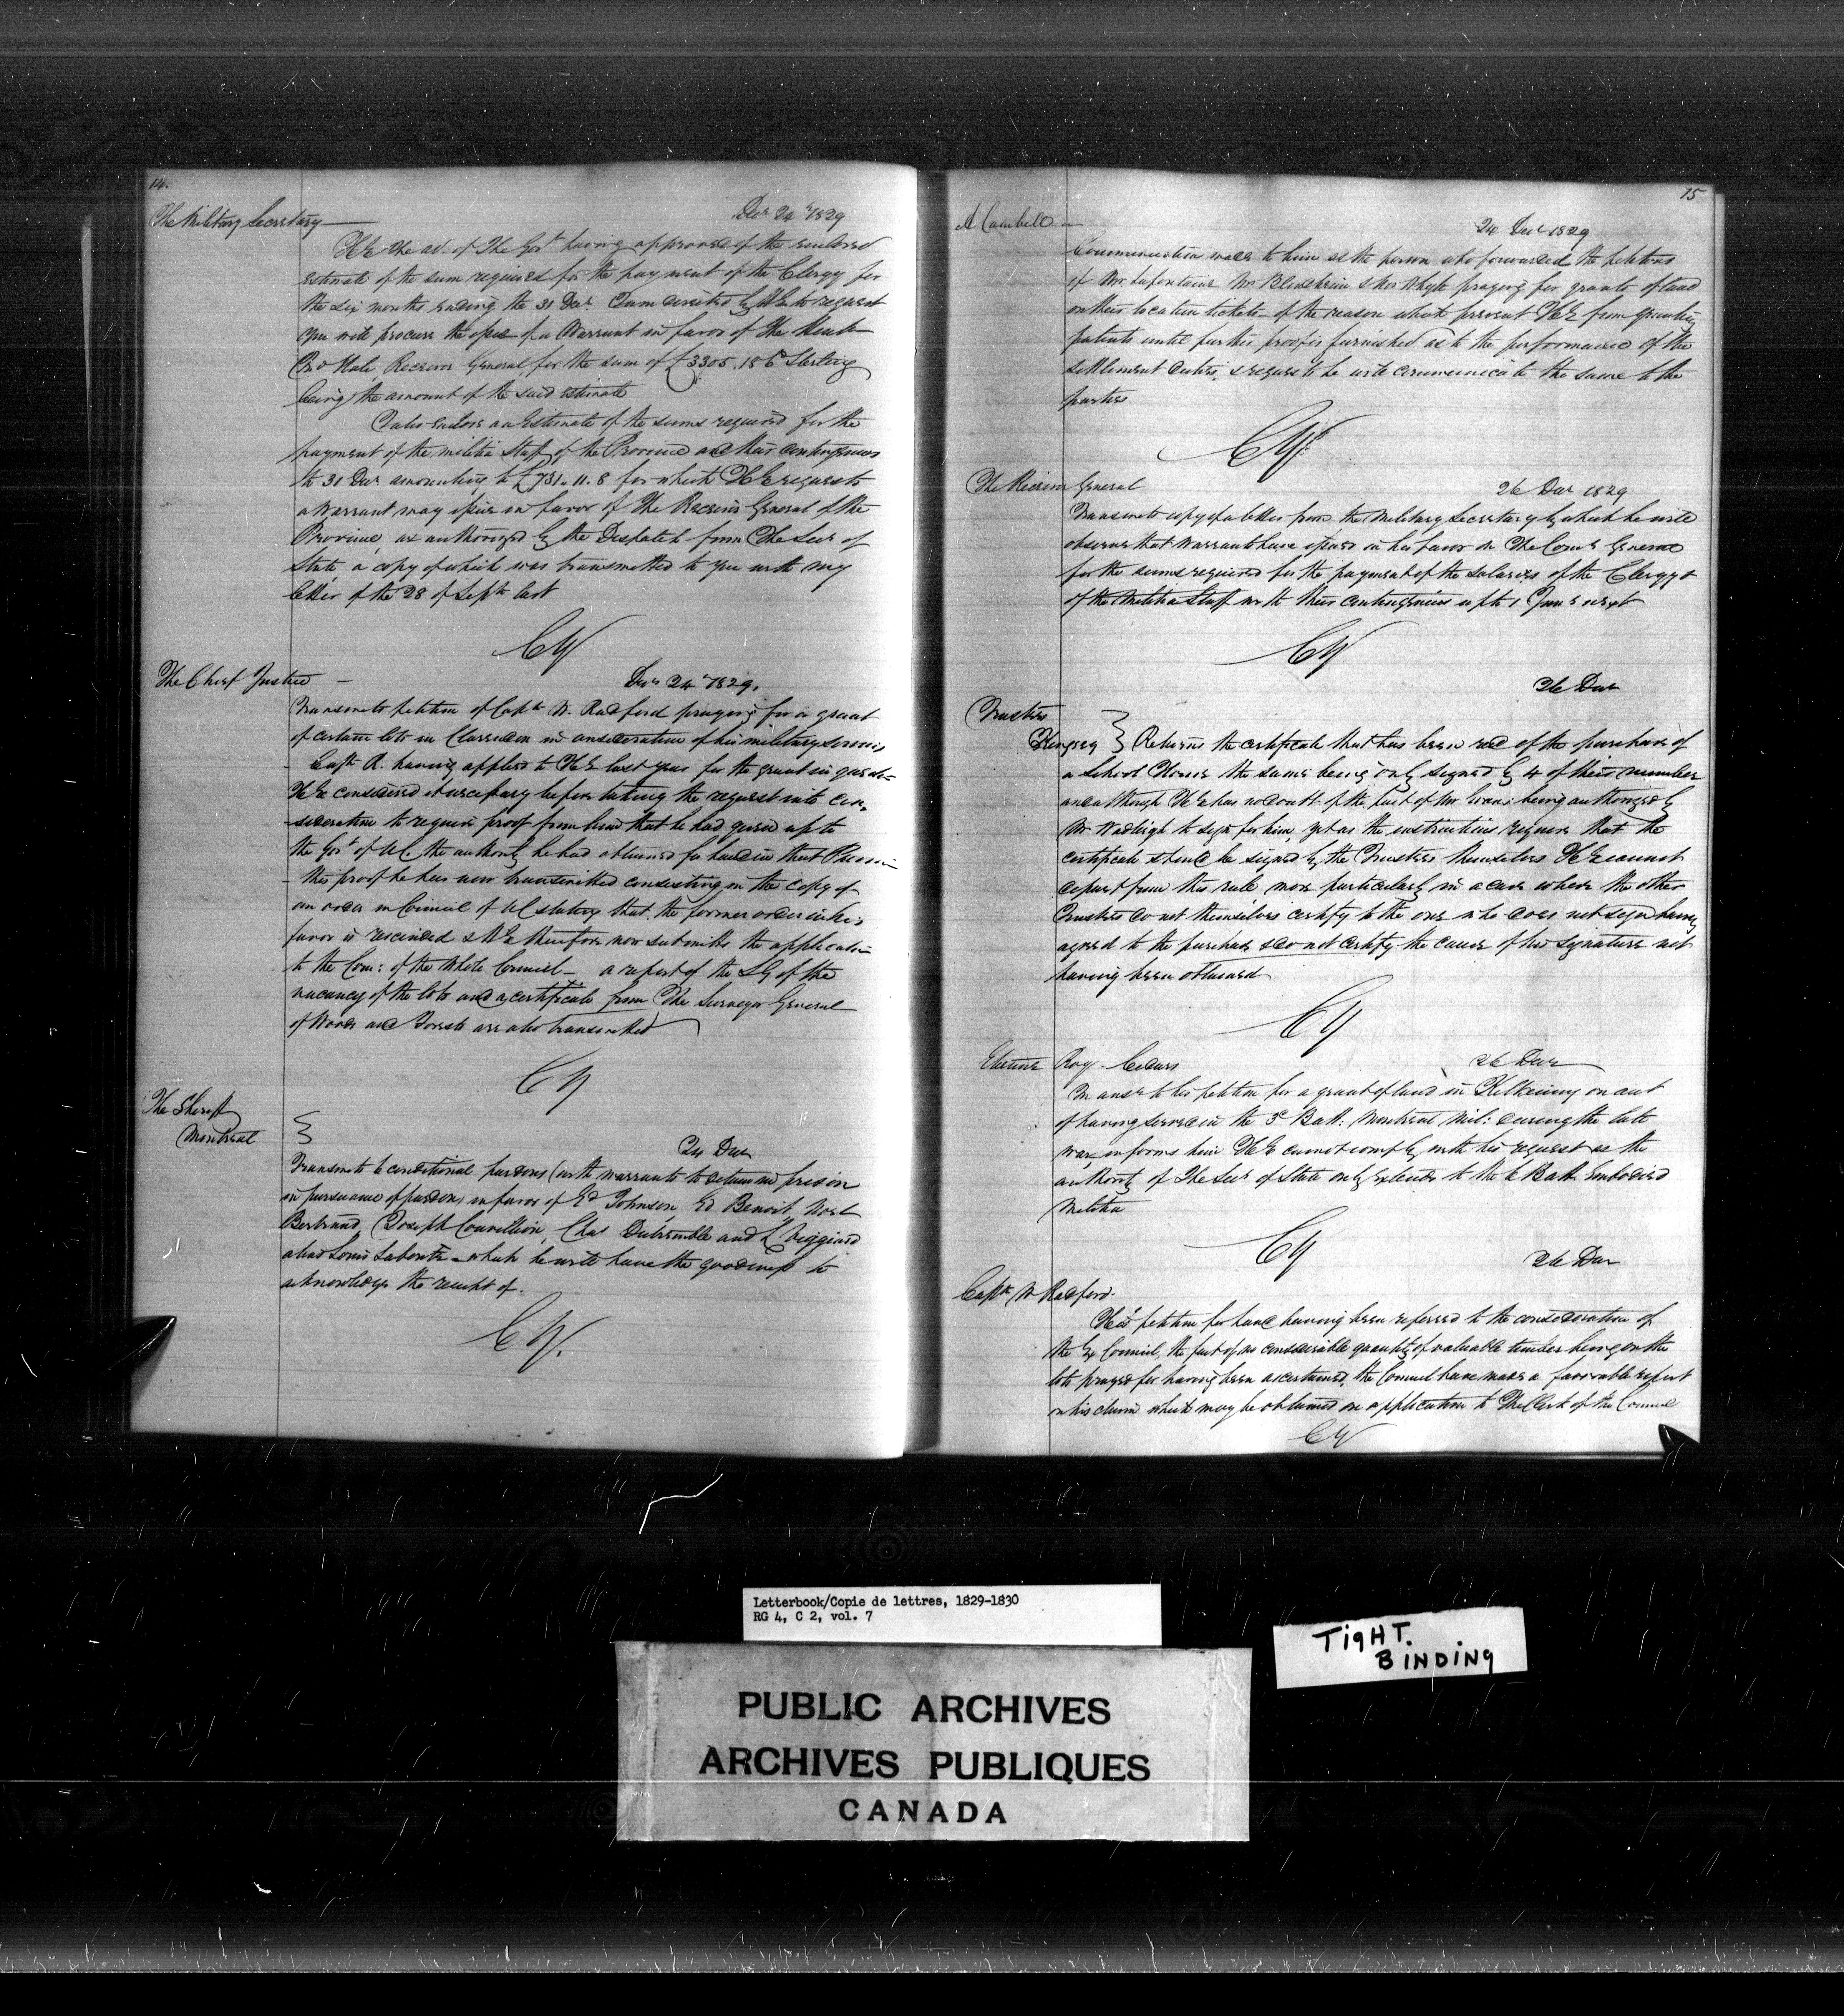 14.
The Military Secretary
Decr 24th 1829
HE the ad. of the Govt having approved of the enclosed
estimate of the sum required for the payment of the Clergy for
the six months ending the 31 Decr I am directed by HE to request
you will procure the issue of a Warrant in favor of the Honble
Jno Hale Receiver General for the sum of £3305.18 6d Sterling
being the amount of the said estimate
I also enclose an Estimate of the sums required for the
payment of the militia Staff of the Province and their contingencies
to 31 Decr amounting to £731.11.8 for which HE requests
a Warrant may issue in favor of The Receiver General of the
Province, as authorized by the Despatch from The Secr of
State a copy of which was transmitted to you with my
letter of the 28 of Septr last
CY
The Chief Justice
Decr 24th 1829.
Transmits petition of Captn W. Radford praying for a grant
of certain lots in Clarendon in consideration of his military services
Captn R. having applied to HE last year for the grant in question
HE considered it necessary before taking the request into con-
sideration to require proof from him that he had given up to
the Govt of UC. the authority he had obtained for land in that Province
this proof he has now transmitted consisting in the copy of
an order in Council of UC stating that the former order in his
favor is rescinded & HE therefore now submitts the application
to the Com: of the Whole Council - a report of the SG of the
vacancy of the lots and a certificate from The Surveyor General
of Woods and Forests are also transmitted
CY
The Sheriff
Montreal
24 Decr
Transmits 6 conditional pardons (with warrants to detain in prison
in pursuance of pardon) in favor of Ed Johnson, Ed Benoit, Noel
Bertrand, Joseph Couvillion, Chas Dutremble and L Veggiard
alias Louis Labonté - which he will have the goodness to
acknowledge the receipt of.
CY.
15
A Cambell
24 Decr 1829
Communication made to him as the person who forwarded the petitions
of Mr. Lafontaine Mr & Mr Whyte praying for grants of land
on their location tickets - of the reason which prevent HE from granting
patents until further proof is furnished as to the performance of the
settlement duties, & request he will communicate the same to the
parties
CY
The Receiver General
26 Decr 1829
Transmits copy of a letter from the Military Secretary by which he will
observe that Warrants have issued in his favor on The Comy General
for the sums required for the payment of the Salaries of the Clergy &
of the Militia Staff with their contingencies up to 1 Jany next
CY
26 Decr
Trustees
Kingsey
Returns the certificate that has been recd of the purchase of
a School House the same being only signed by 4 of their number
and although HE has no doubt of the fact of Mr being authorized by
Mr Wadleigh to sign for him, yet as the instructions require that the
certificate should be signed by the Trustees themselves HE cannot
depart from this rule more particularly in a case where the other
Trustees do not themselves certify to the one who does not sign having
agreed to the purchase & do not certify the cause of his signature not
having been obtained
CY
Etienne Roy - Cedars
26 Decr
In ansr to his petition for a grant of land in Kilkenny on acct
of having served in the 3d Batt: Montreal Mil: during the late
war, informs him HE cannot comply with his request as the
authority of The Secr of State only extends to the 6 Batt Embodied
Militia
CY
26 Decr
Captn W Radford.
His petition for land having been referred to the consideration of
the Ex Council, the fact of no considerable quantity of valuable timber being on the
lots prayed for having been ascertained, the Council have made a favorable report
on his claim which may be obtained on application to The Clerk of the Council
CY
Letterbook/Copie de lettres, 1829-1830
RG 4, C 2, vol. 7
TIGHT.
BINDING
PUBLIC ARCHIVES
ARCHIVES PUBLIQUES
CANADA